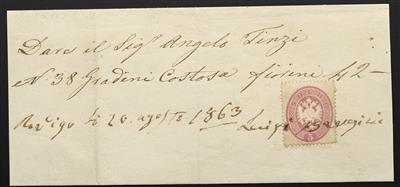 Dare il Sigr Angelo Tinzi
N. 38 Gradini Costosa fiorini 42-
Rovigo li 26 agosto 1863
Luigi